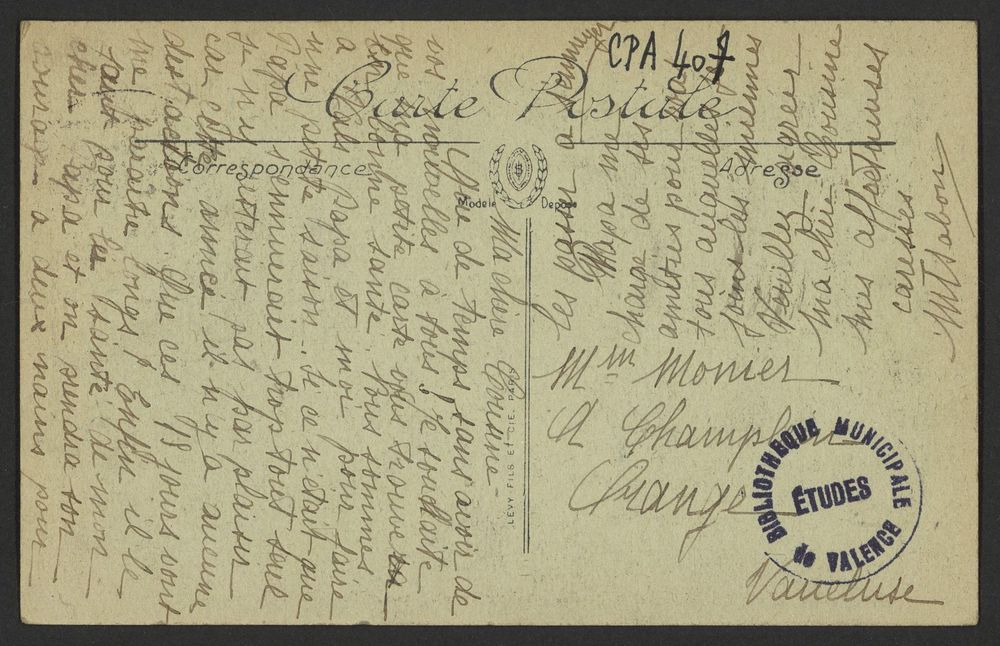 CPA 407
Carte Postale
Correspondance
Adresse
Modèle Déposé
LEVY FILS ET CIE. PARIS
Ma chère Cousine -
Que de temps sans avoir de
vos nouvelles à tous, je souhaite
que ma petite carte vous trouve en
bonne santé. Nous sommes
à Vals Papa et moi pour faire
une petite saison. Si ce n'était que
Papa s'ennuierait trop tout seul
je n'y resterais pas par plaisir
car cette année il n'y a aucune
distractions. Que ces 18 jours vont
me paraître longs ! Enfin il le
faut pour la santé de mon
cher Papa et on prendra son
courage à deux mains pour
les passer
Papa me
charge de ses
amitiés pour
tous auxquelles je
joins les miennes
Veuillez agréer
ma chère Cousine
mes affectueuses
caresses
M Sabon
Mme Monier
A Champlain
Orange
Vaucluse
BIBLIOTHEQUE MUNICIPALE
ÉTUDES
de VALENCE